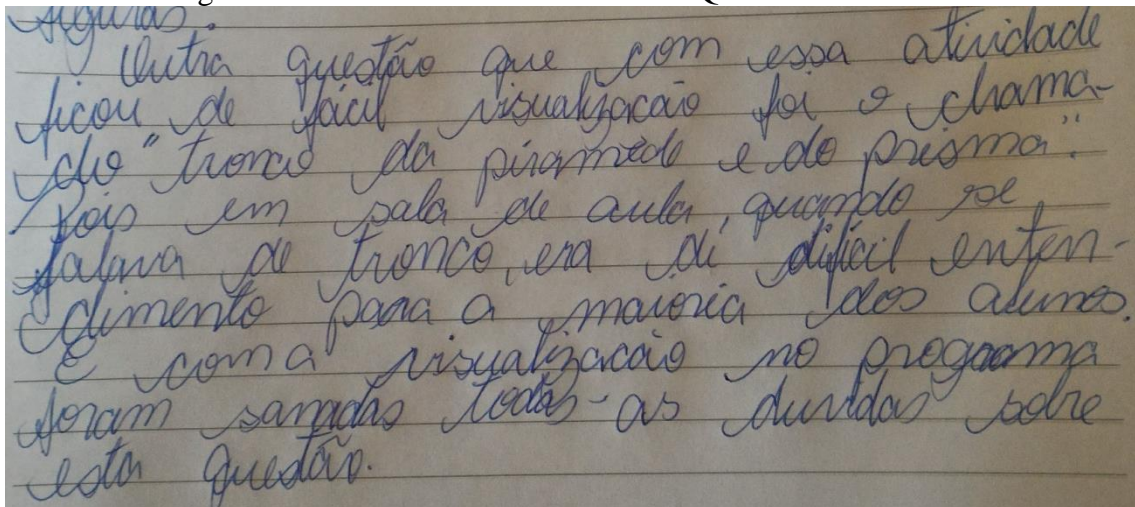 figuras.
Outra questão que com essa atividade
ficou de fácil visualizacão foi o chama-
do "tronco da piramede e do prisma".
Pois em sala de aula, quando se
falava de tronco, era di dificil enten-
dimento para a maioria dos alunos.
E com a visualizacão no programa
foram sanadas todas as duvidas sobre
esta questão.